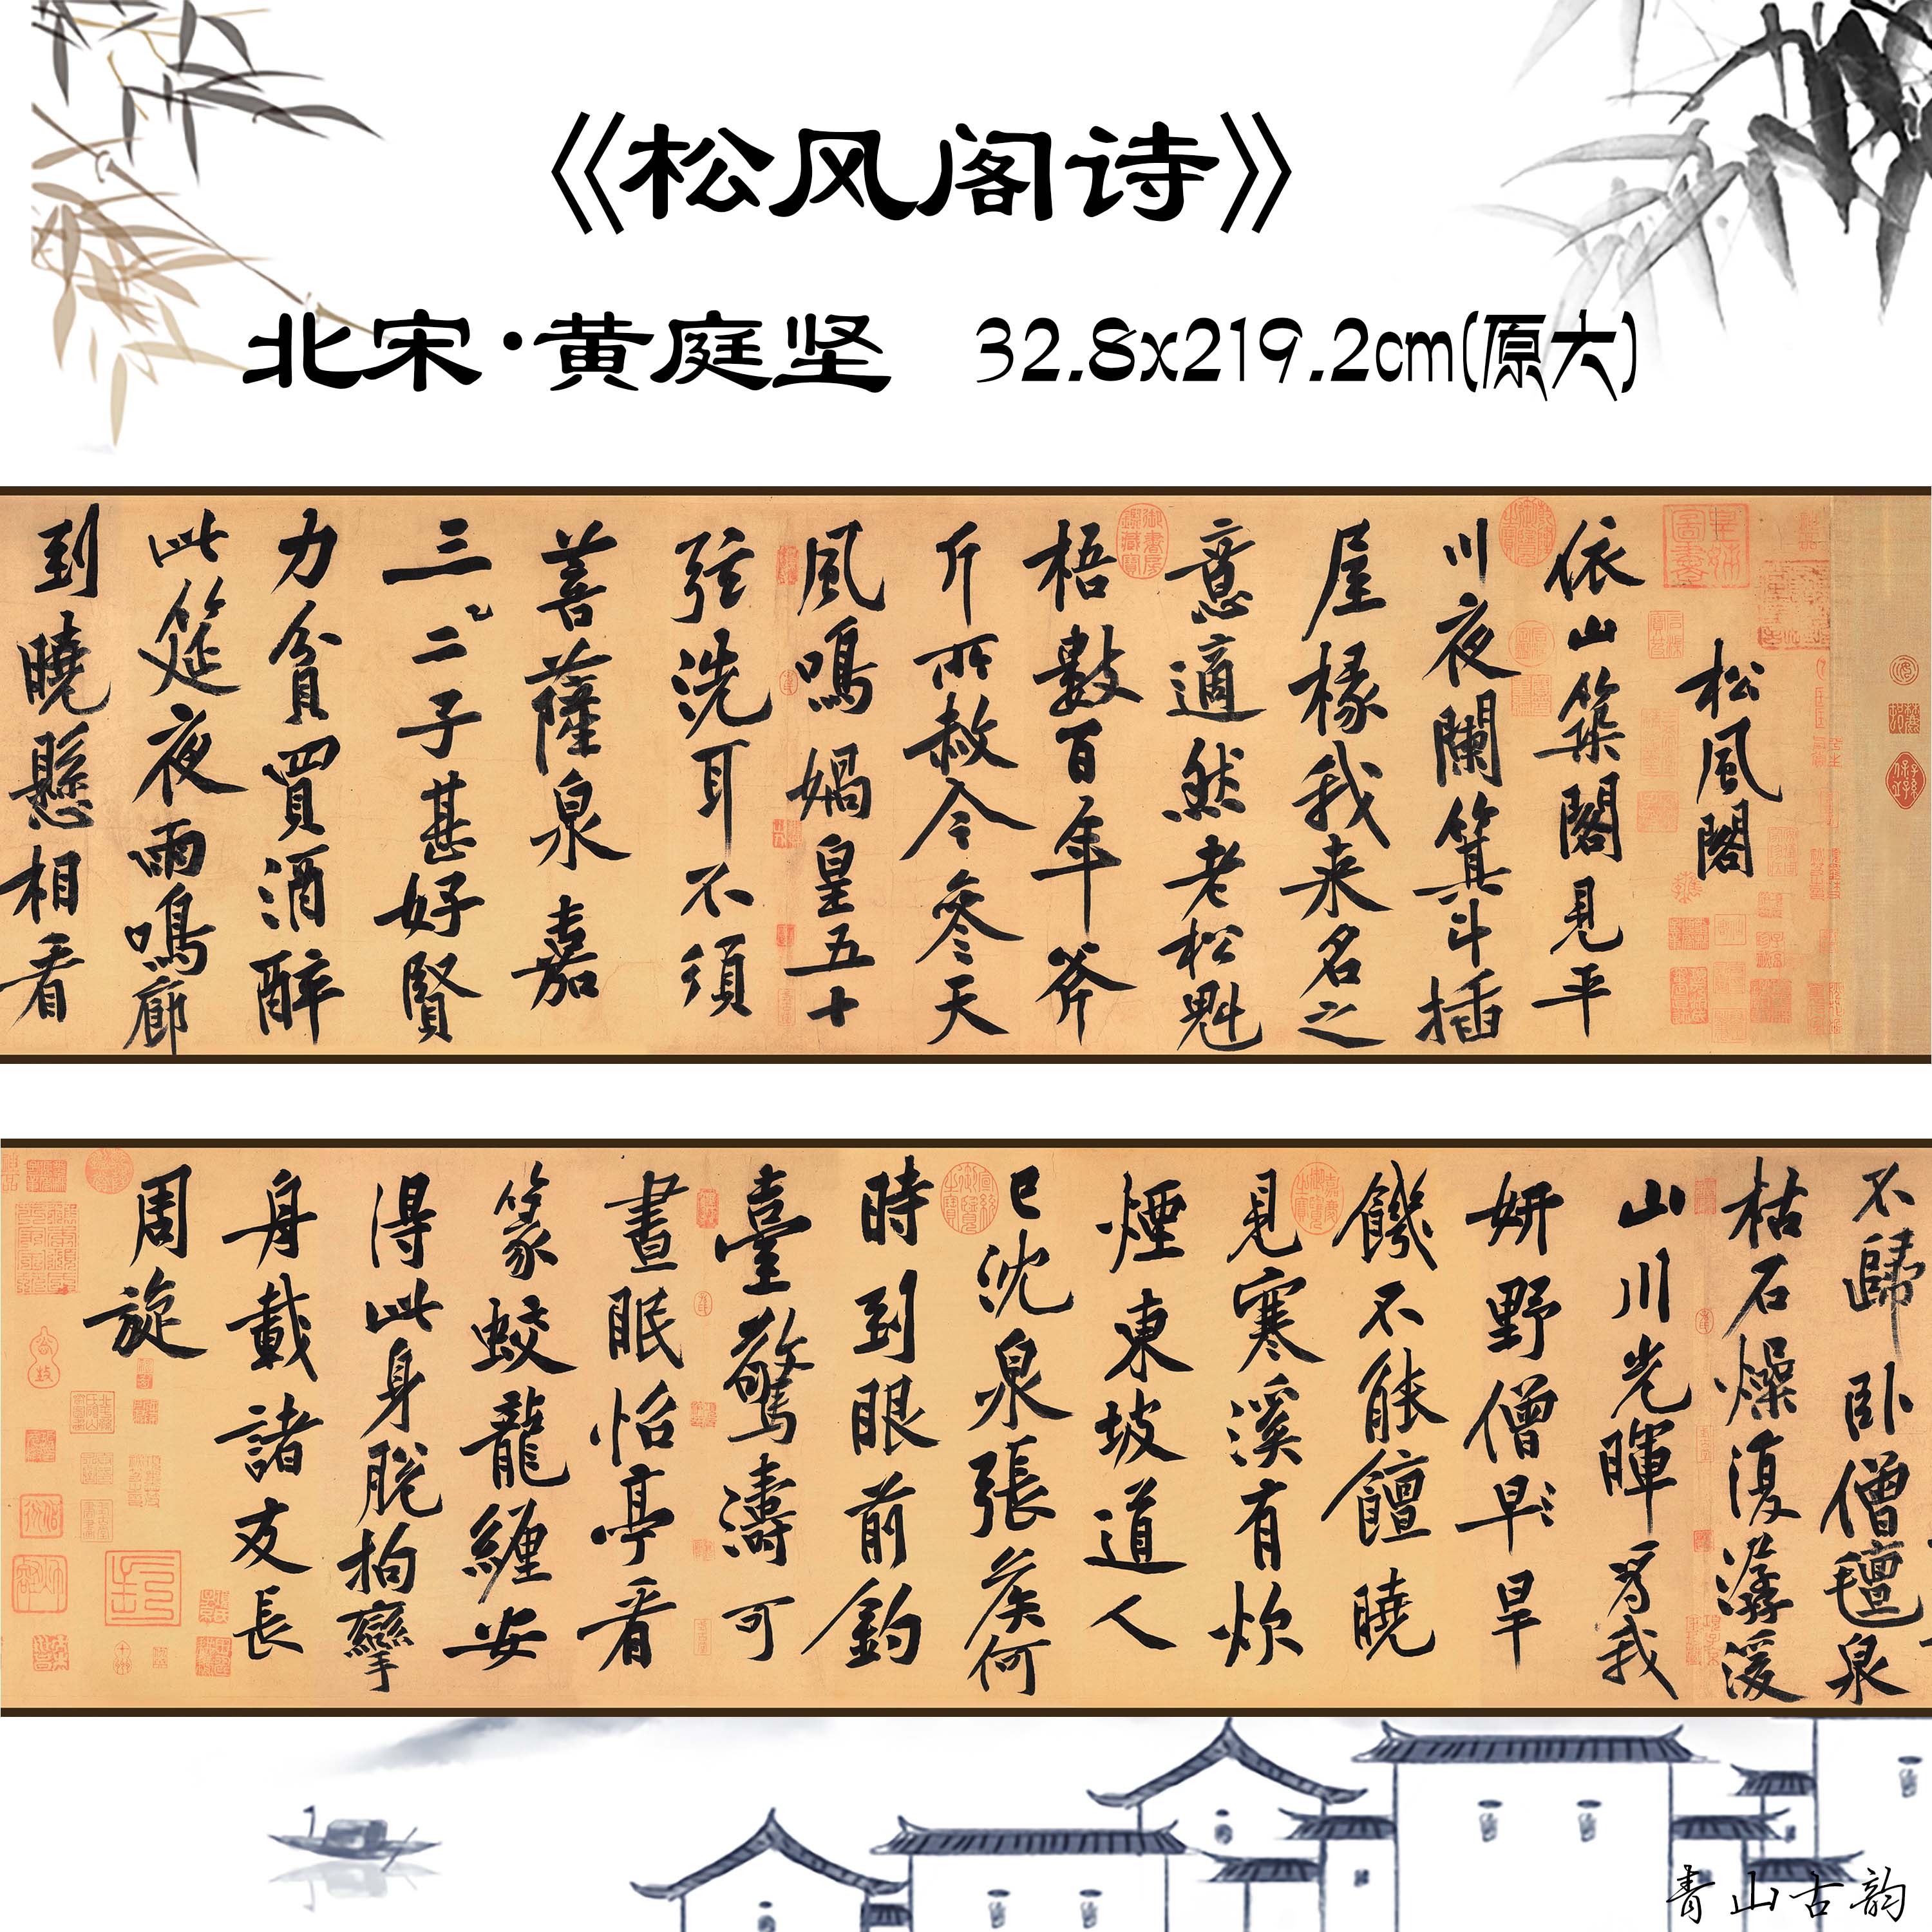 《松风阁诗》
北宋·黄庭坚 32.8x219.2cm(原大)
松風閣
依山築閣見平
川夜闌箕斗插
屋椽我来名之
意適然老松魁
梧數百年斧
斤所赦今參天
風鳴媧皇五十
弦洗耳不須
菩薩泉嘉
三〻二子甚好賢
力貧買酒醉
此筵夜雨鳴廊
到曉懸相看
不歸卧僧氈泉
枯石燥復潺湲
山川光暉爲我
妍野僧早〻旱
饑不能饘曉
見寒溪有炊
煙東坡道人
已沈泉張侯何
時到眼前釣
臺驚濤可
晝眠怡亭看
篆蛟龍纏安
得此身脫拘攣
舟載諸友長
周旋
青山古韵